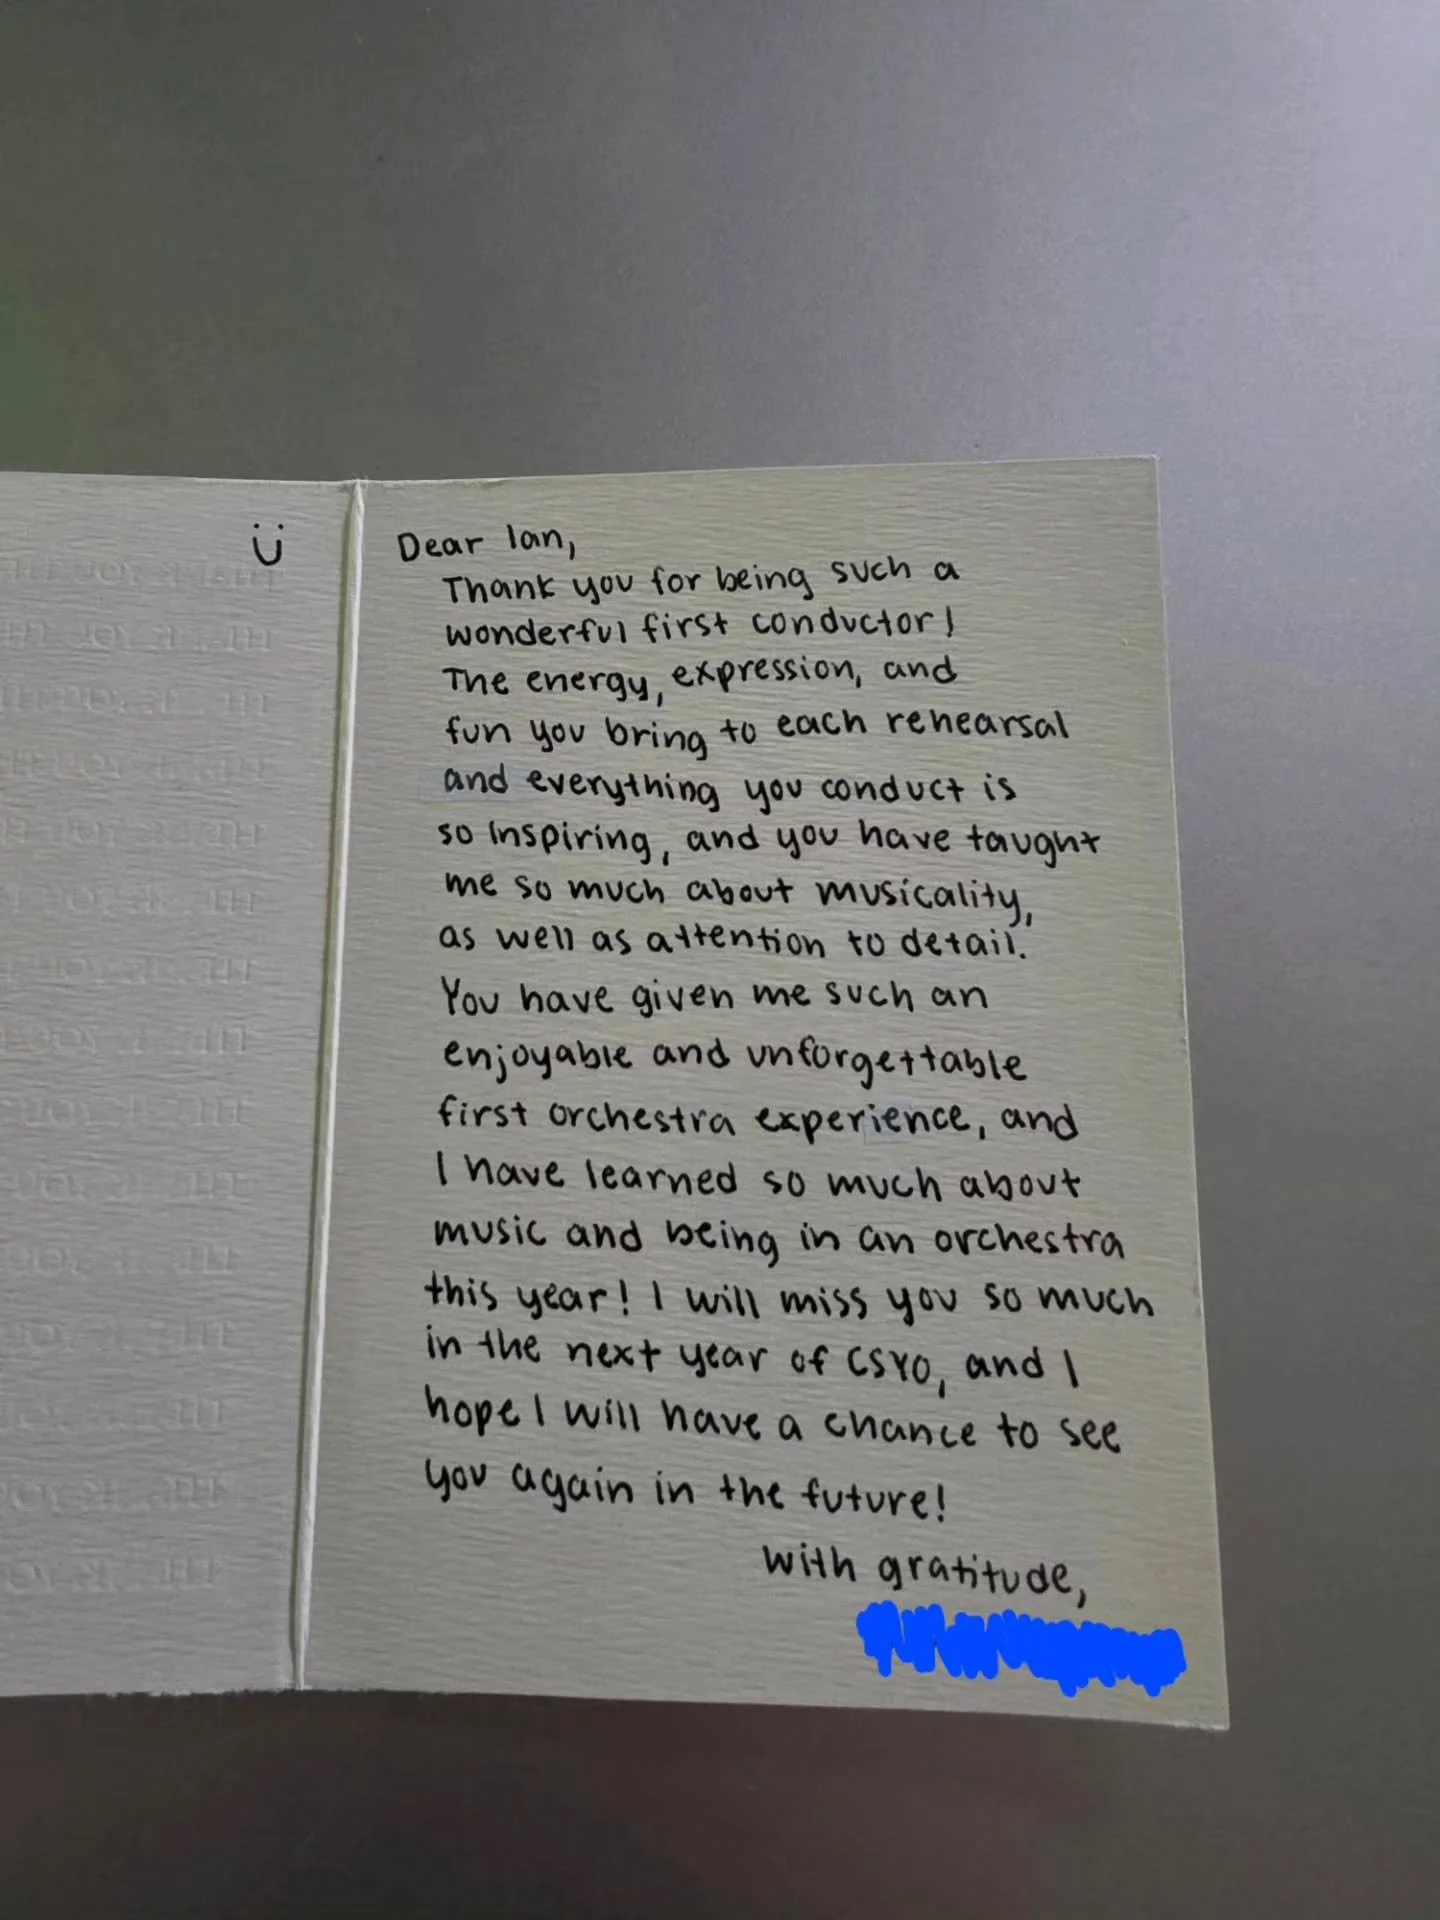 Dear Ian,
Thank you for being such a
wonderful first conductor!
The energy, expression, and
fun you bring to each rehearsal
and everything you conduct is
so inspiring, and you have taught
me so much about musicality,
as well as attention to detail.
You have given me such an
enjoyable and unforgettable
first orchestra experience, and
I have learned so much about
music and being in an orchestra
this year! I will miss you so much
in the next year of CSYO, and I
hope I will have a chance to see
you again in the future!
With gratitude,